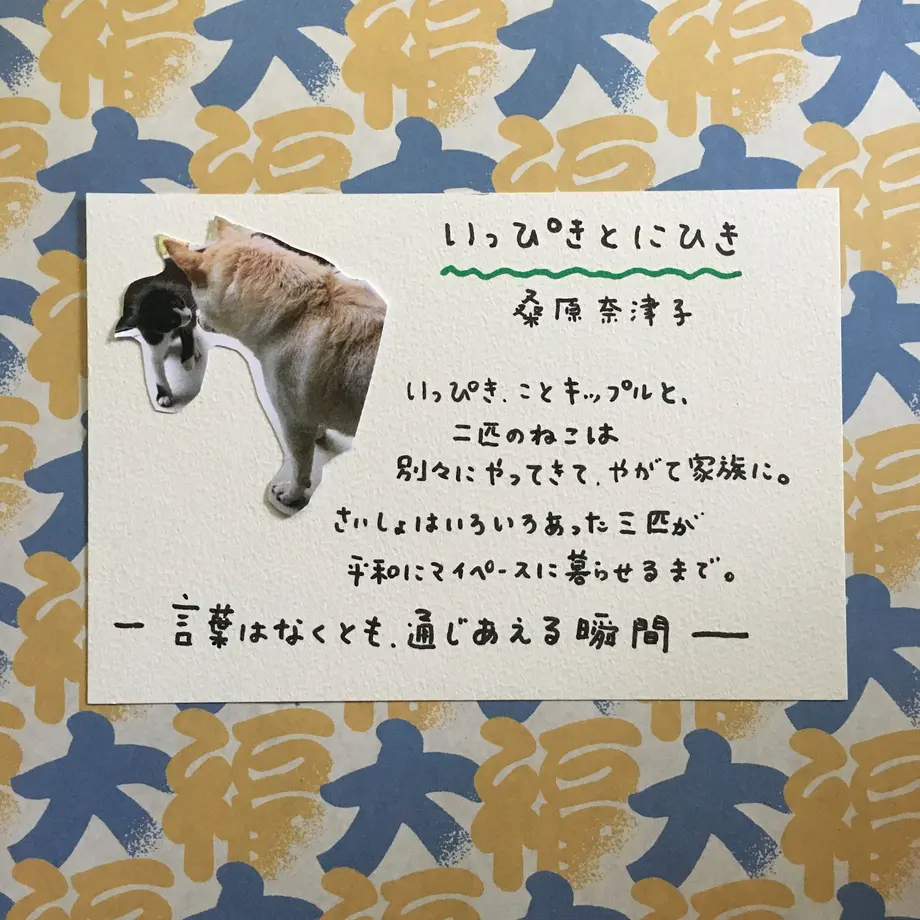 いっぴきとにひき
桑原奈津子
いっぴき、ことキップルと、
二匹のねこは
別々にやってきて、やがて家族に。
さいしょはいろいろあった三匹が
平和にマイペースに暮らせるまで。
― 言葉はなくとも、通じあえる瞬間 ―